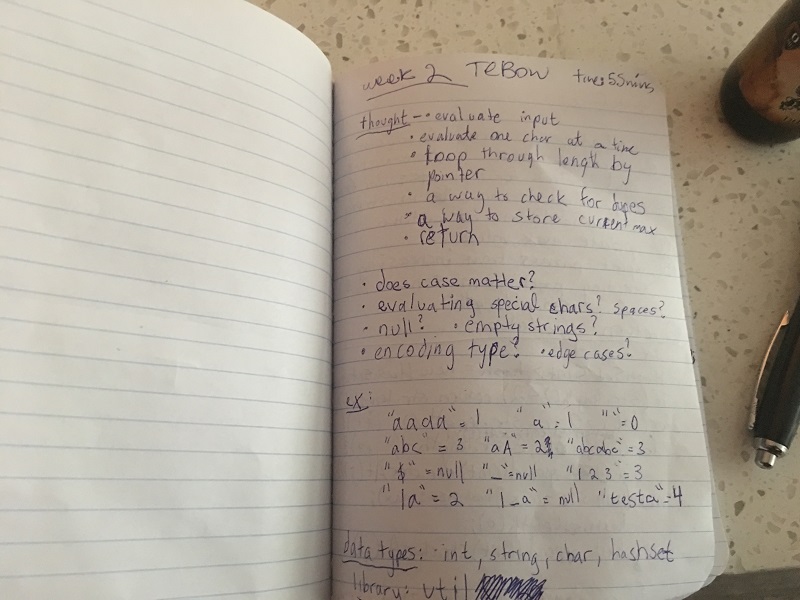 week 2 TEBOW time: 55mins
thought - • evaluate input
• evaluate one char at a time
• loop through length by
pointer
• a way to check for dupes
• a way to store current max
• return
• does case matter?
• evaluating special chars? spaces?
• null? • empty strings?
• encoding type? • edge cases?
ex:
"aaaa" = 1 "a" = 1 "" = 0
"abc" = 3 "aA" = 2 "abcabc" = 3
"$" = null "_" = null "123" = 3
"1a" = 2 "1_a" = null "testa" = 4
data types: int, string, char, hashset
library: util